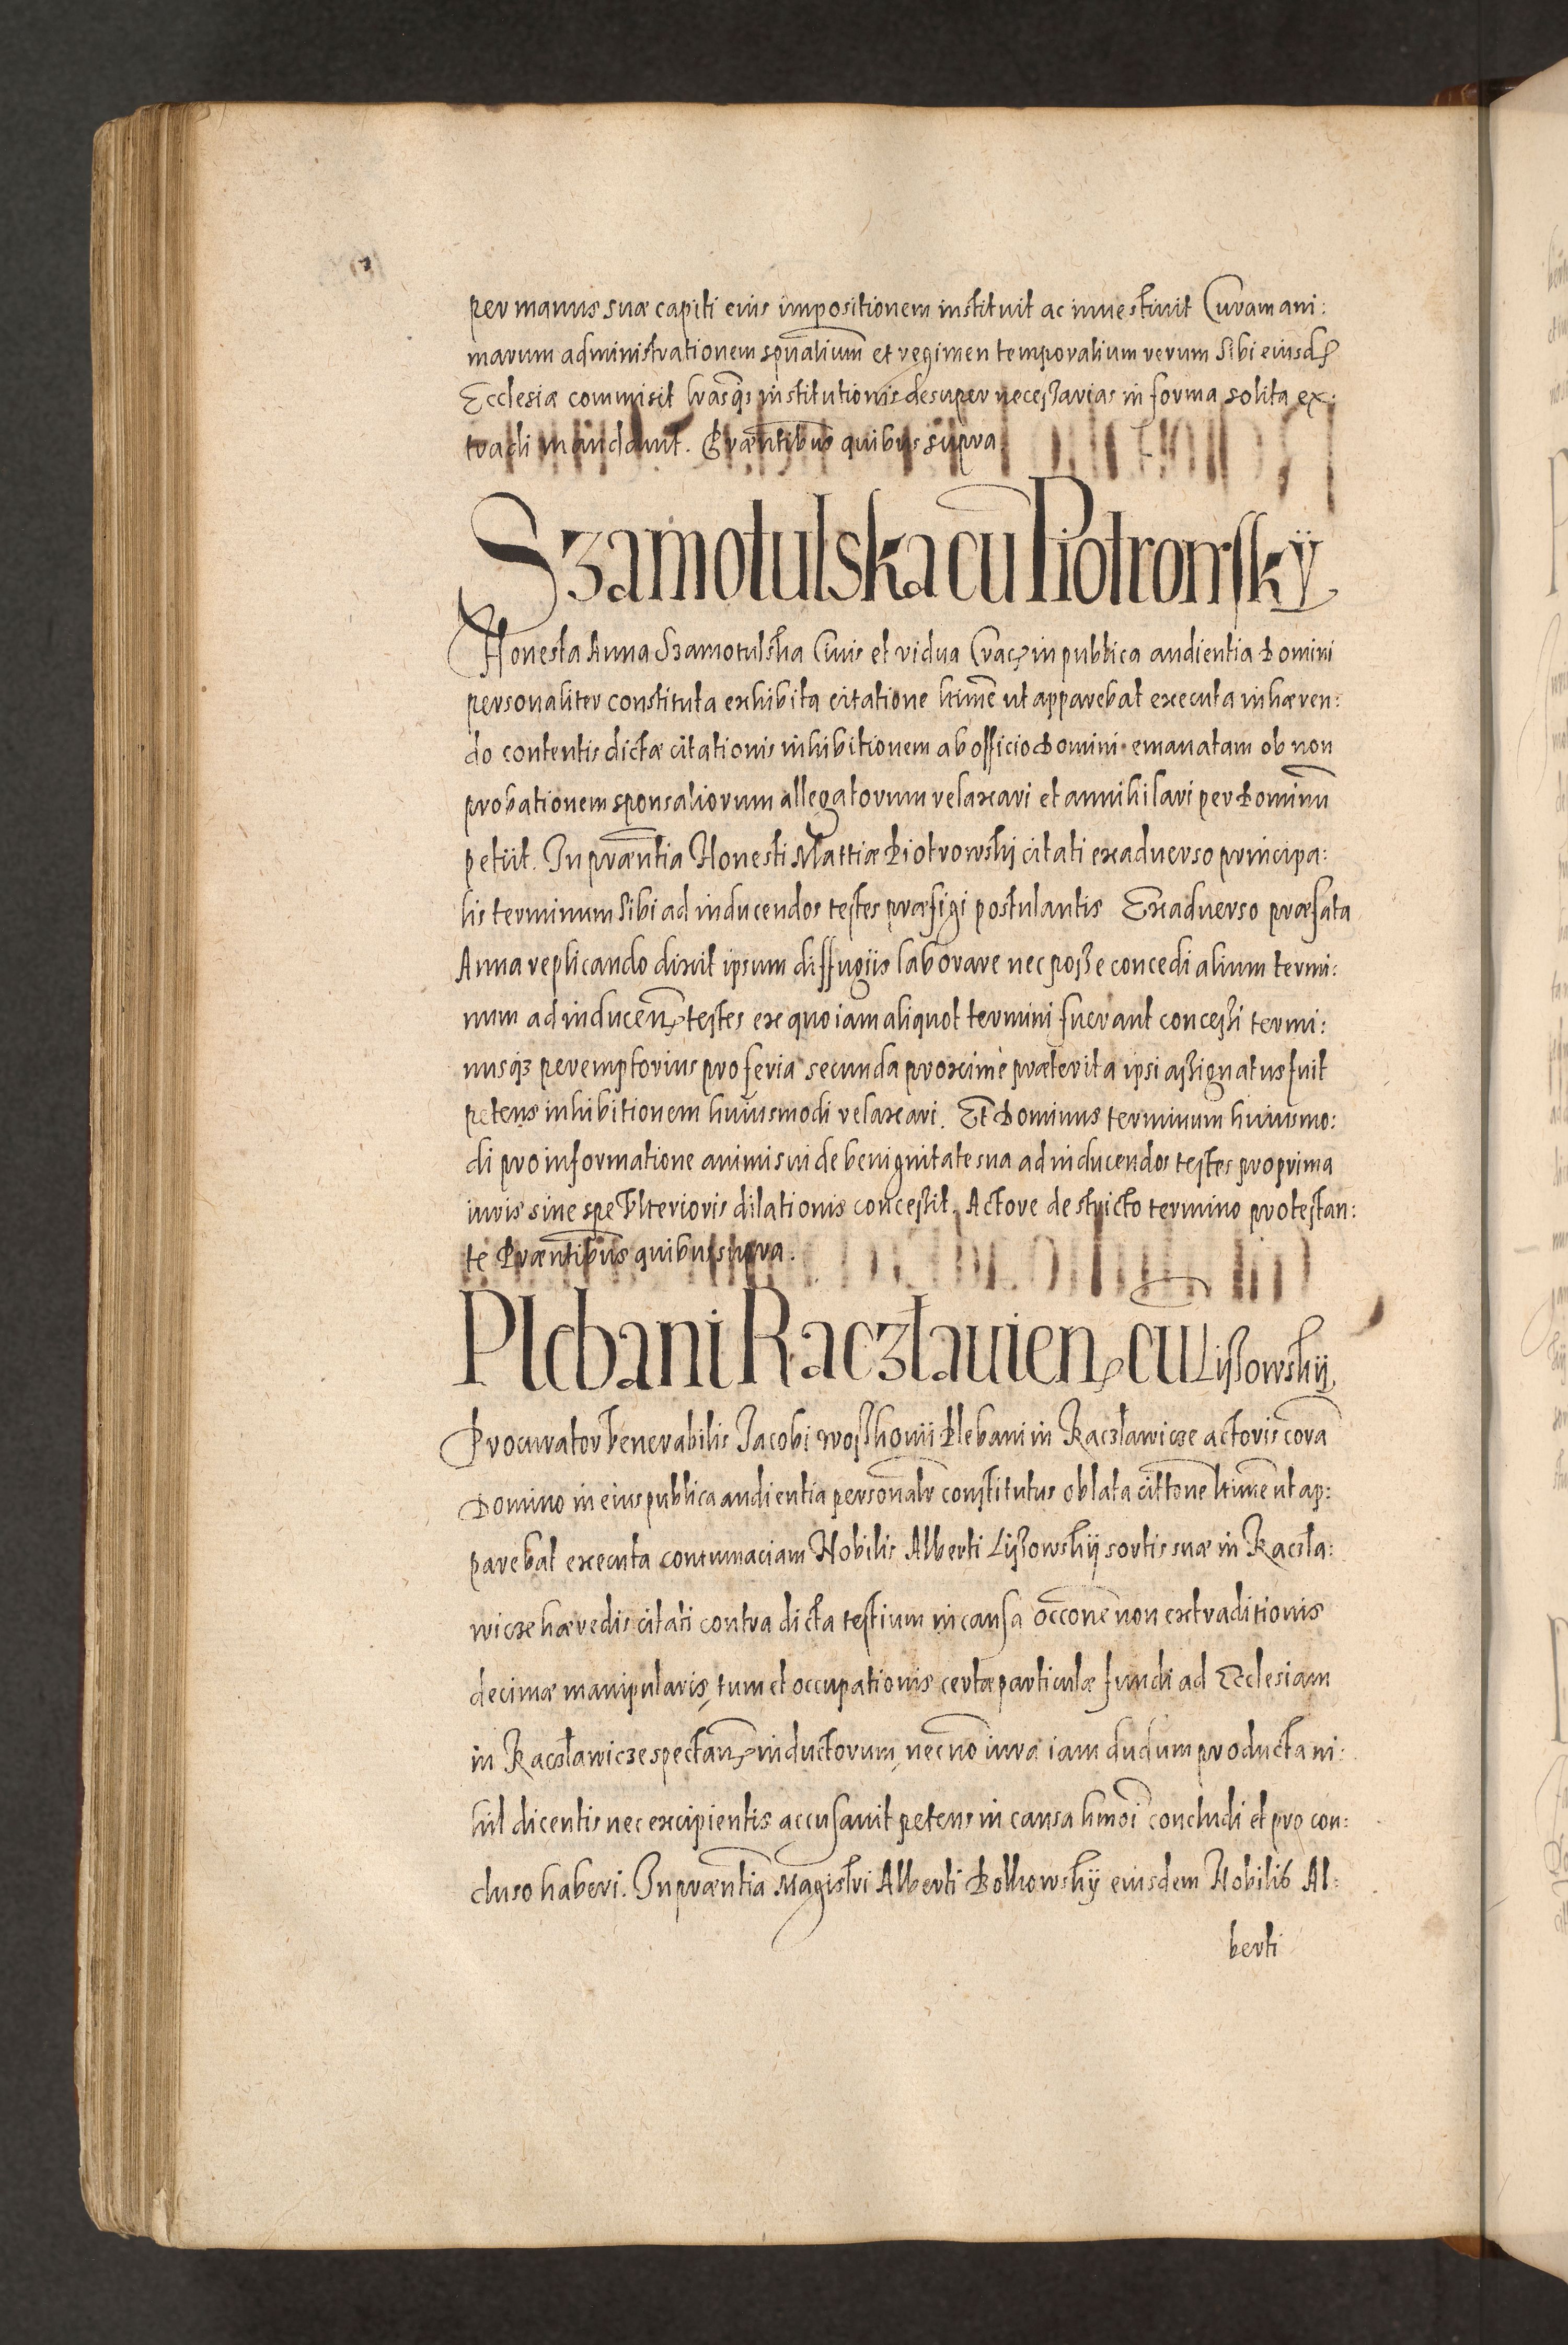 per manus suæ capiti eius impositionem instituit ac inuestiuit Curam ani:
marum administrationem spūalium et regimen temporalium rerum sibi eiusd
Ecclesiæ commisit lrasq₃ institutionis desuper necessarias in forma solita ex:
tradi mandauit. Præntibus quibus supra
Szamotulska cū Piotrowskÿ
Honesta Anna Szamotulska Ciuis et vidua Crac in publica audientia Domini
personaliter constituta exhibita citatione ltime ut apparebat executa inhæren:
do contentis dictæ citationis inhibitionem ab officio Domini emanatam ob non
probationem sponsaliorum allegatorum relaxari et annihilari per Dominū
petiit. In præntia Honesti Mattiæ Piotrowskij citati ex aduerso principa:
lis terminum sibi ad inducendos testes præfigi postulantis Ex aduerso præfata
Anna replicando dixit ipsum diffugiis laborare nec posse concedi alium termi:
num ad inducen testes ex quo iam aliquot termini fuerant concessi termi:
nusq₃ peremptorius pro feria secunda proxime præterita ipsi assignatus fuit
petens inhibitionem huiusmodi relaxari. Et Dominus terminum huiusmo:
di pro informatione animi sui de benignitate sua ad inducendos testes pro prima
iuris sine spe Vlterioris dilationis concessit. Actore de stricto termino protestan:
te Præntibus quibus supra.
Plebani Raczlauien cū Lissowskij
Procurator Venerabilis Jacobi Plebani in Raczlawicze actoris corā
Domino in eius publica audientia personalr constitutus oblata cittone ltime ut ap:
parebat executa contumaciam Nobilis Alberti Lissowskij sortis suæ in Raczla:
wicze hæredis citati contra dicta testium in causa occone non extraditionis
decimæ manipularis, tum et occupationis certæ particulæ fundi ad Ecclesiam
in Raczlawicze spectan inductorum, necno iura iam dudum producta ni:
hil dicentis nec excipientis accusauit petens in causa hmoi concludi et pro con:
cluso haberi. In præntia Magistri Alberti eiusdem Nobilis Al:
berti